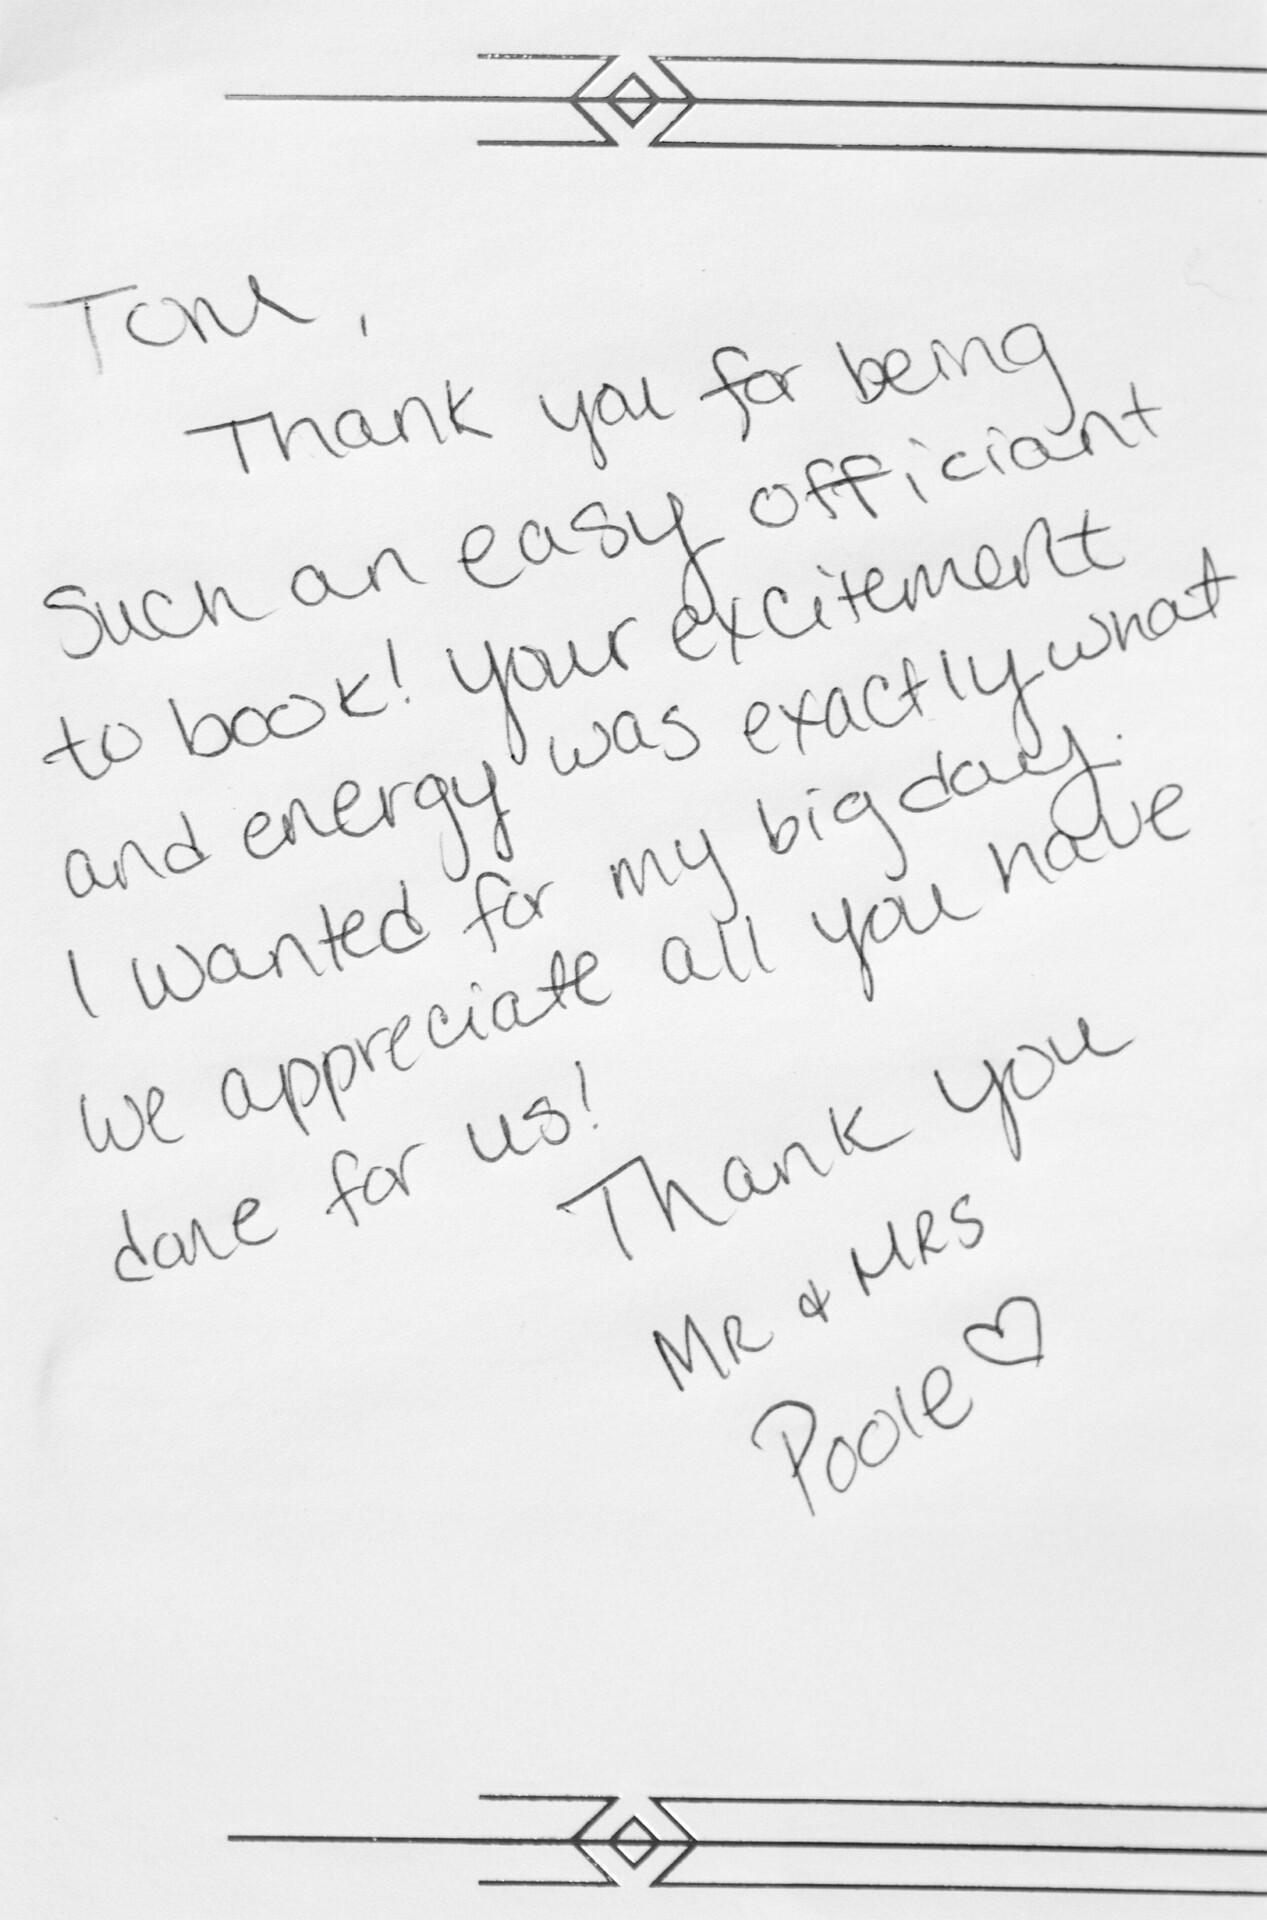 Toni,
Thank you for being
Such an easy officiant
to book! Your excitement
and energy was exactly what
I wanted for my big day.
We appreciate all you have
done for us!
Thank you
MR & MRS
Poole ♡